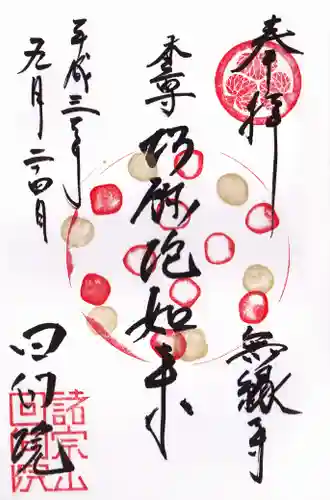 奉拝
無縁寺
本尊
阿弥陀如来
平成三十年
九月二四日
回向院
諸宗山
回向院